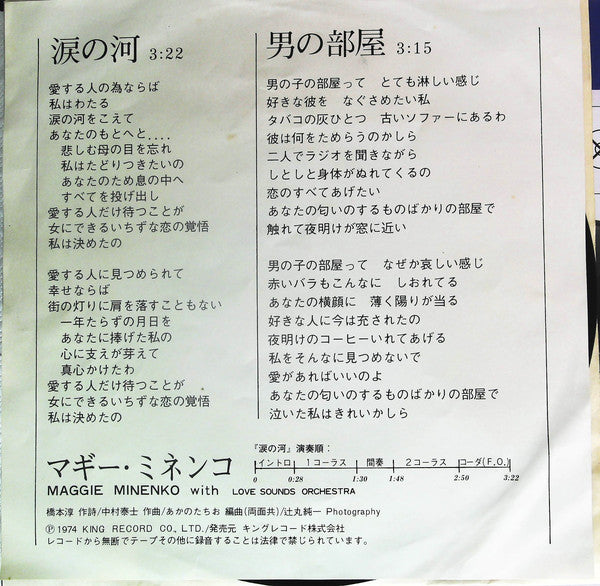 涙の河 3:22
愛する人の為ならば
私はわたる
涙の河をこえて
あなたのもとへと....
悲しむ母の目を忘れ
私はたどりつきたいの
あなたのため息の中へ
すべてを投げ出し
愛する人だけ待つことが
女にできるいちずな恋の覚悟
私は決めたの
愛する人に見つめられて
幸せならば
街の灯りに肩を落すこともない
一年たらずの月日を
あなたに捧げた私の
心に支えが芽えて
真心かけたわ
愛する人だけ待つことが
女にできるいちずな恋の覚悟
私は決めたの
男の部屋 3:15
男の子の部屋って とても淋しい感じ
好きな彼を なぐさめたい私
タバコの灰ひとつ 古いソファーにあるわ
彼は何をためらうのかしら
二人でラジオを聞きながら
しとしと身体がぬれてくるの
恋のすべてあげたい
あなたの匂いのするものばかりの部屋で
触れて夜明けが窓に近い
男の子の部屋って なぜか哀しい感じ
赤いバラもこんなに しおれてる
あなたの横顔に 薄く陽りが当る
好きな人に今は充されたの
夜明けのコーヒーいれてあげる
私をそんなに見つめないで
愛があればいいのよ
あなたの匂いのするものばかりの部屋で
泣いた私はきれいかしら
マギー・ミネンコ
MAGGIE MINENKO with LOVE SOUNDS ORCHESTRA
『涙の河』演奏順：
イントロ 1コーラス 間奏 2コーラス コーダ(F.O.)
0 0:28 1:30 1:48 2:50 3:22
橋本淳 作詩/中村泰士 作曲/あかのたちお 編曲(両面共)/辻丸純一 Photography
Ⓟ1974 KING RECORD CO., LTD./発売元 キングレコード株式会社
レコードから無断でテープその他に録音することは法律で禁じられています。